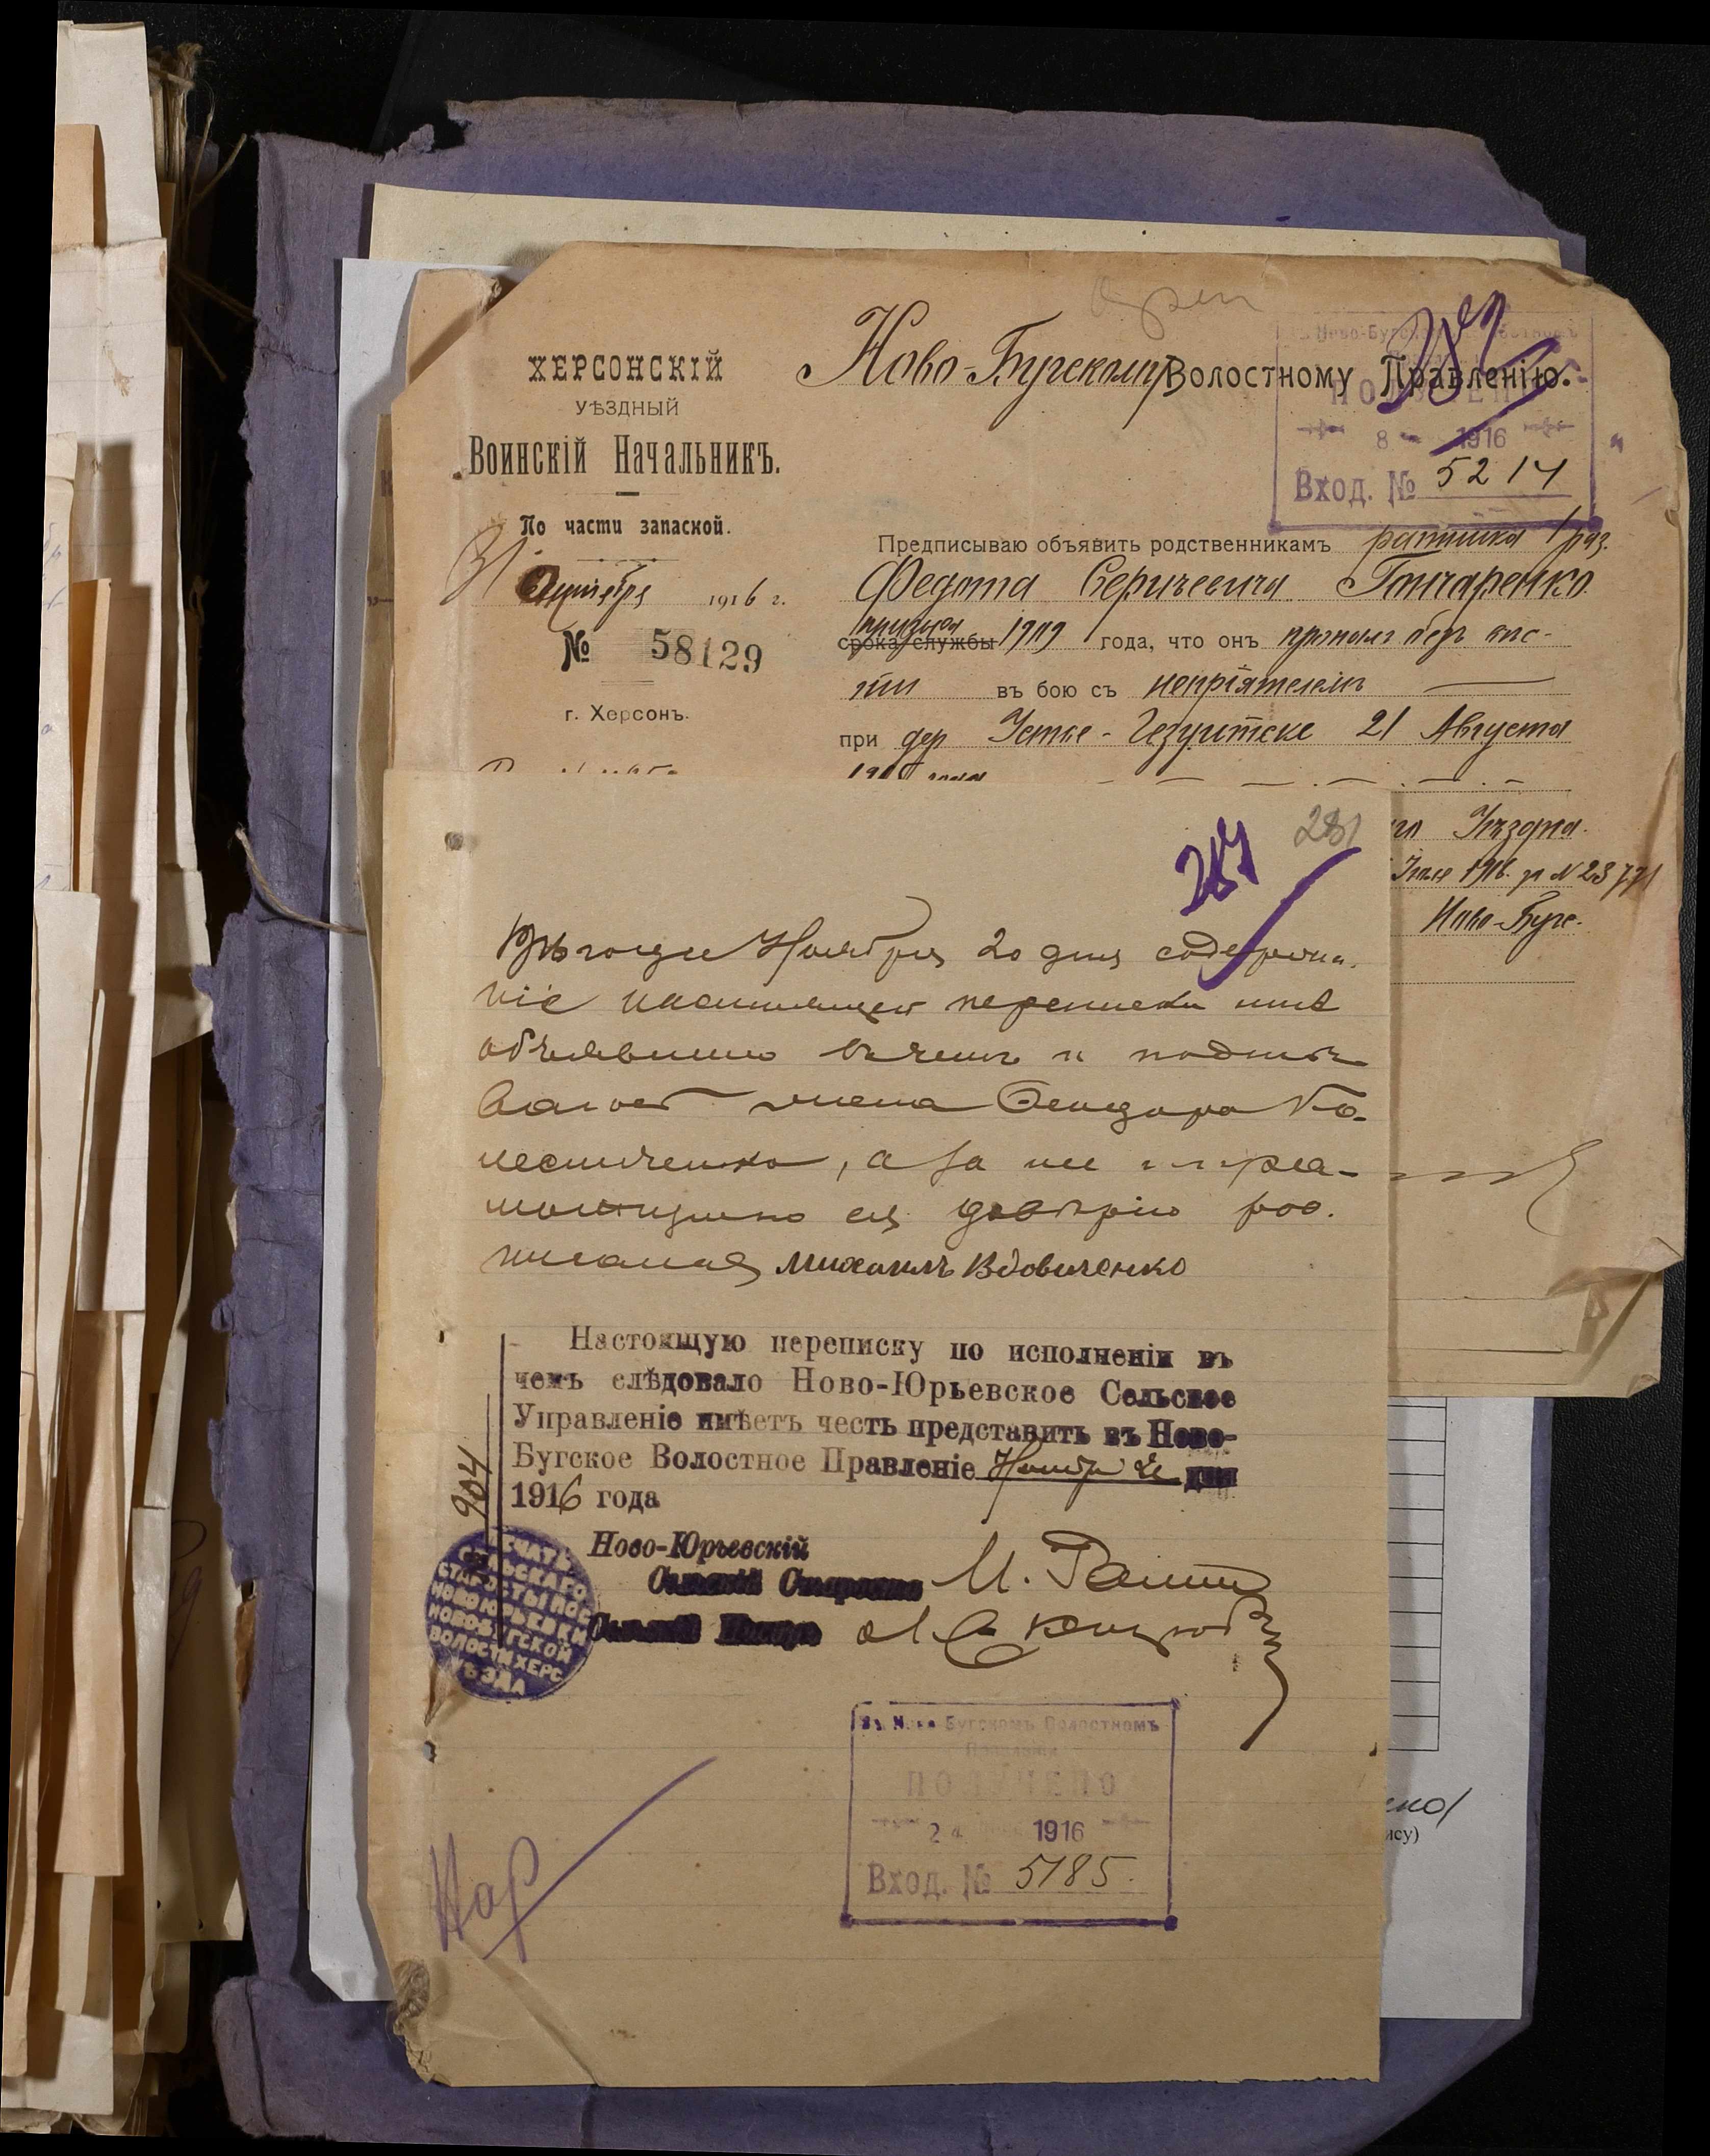 ХЕРСОНСКІЙ
УѢЗДНЫЙ
ВОИНСКІЙ НАЧАЛЬНИКЪ.
По части запаской.
31 Октября 1916 г.
№ 58129
г. Херсонъ.
Ново-Бугскому Волостному Правленію.
1916
Вход. № 5214
Предписываю объявить родственникамъ ратника 1 раз.
Федота Сергѣевича Гончаренко
призыва
срока службы 1909 года, что онъ пропалъ безъ вѣс-
ти въ бою съ непріятелемъ
при дер Устье-Іезуитске 21 Августа
Уѣзда.
1916. за № 23771
Ново-Буг-
287
281
Ноября 20 дня содержа-
ніе настоящей переписки мнѣ
объявлено въ чемъ и подпи-
а за не грa-
мотную ея довѣрію рос-
писался Михаилъ Вдовиченко
Настоящую переписку по исполненіи въ
чемъ слѣдовало Ново-Юрьевское Сельское
Управленіе имѣетъ честь представить въ Ново-
Бугское Волостное Правленіе Ноября дня
1916 года
904
Ново-Юрьевскій
Сельскій Староста
Сельскій Писарь
ПЕЧАТЬ
СЕЛЬСКАГО
СТАРОСТЫ ПОС
НОВОЮРЬЕВКИ
НОВОБУГСКОЙ
ВОЛОСТИ ХЕРС
УѢЗДА
Въ Ново-Бугскомъ Волостномъ
Правленіи
ПОЛУЧЕНО
24 1916
Вход. № 5185.